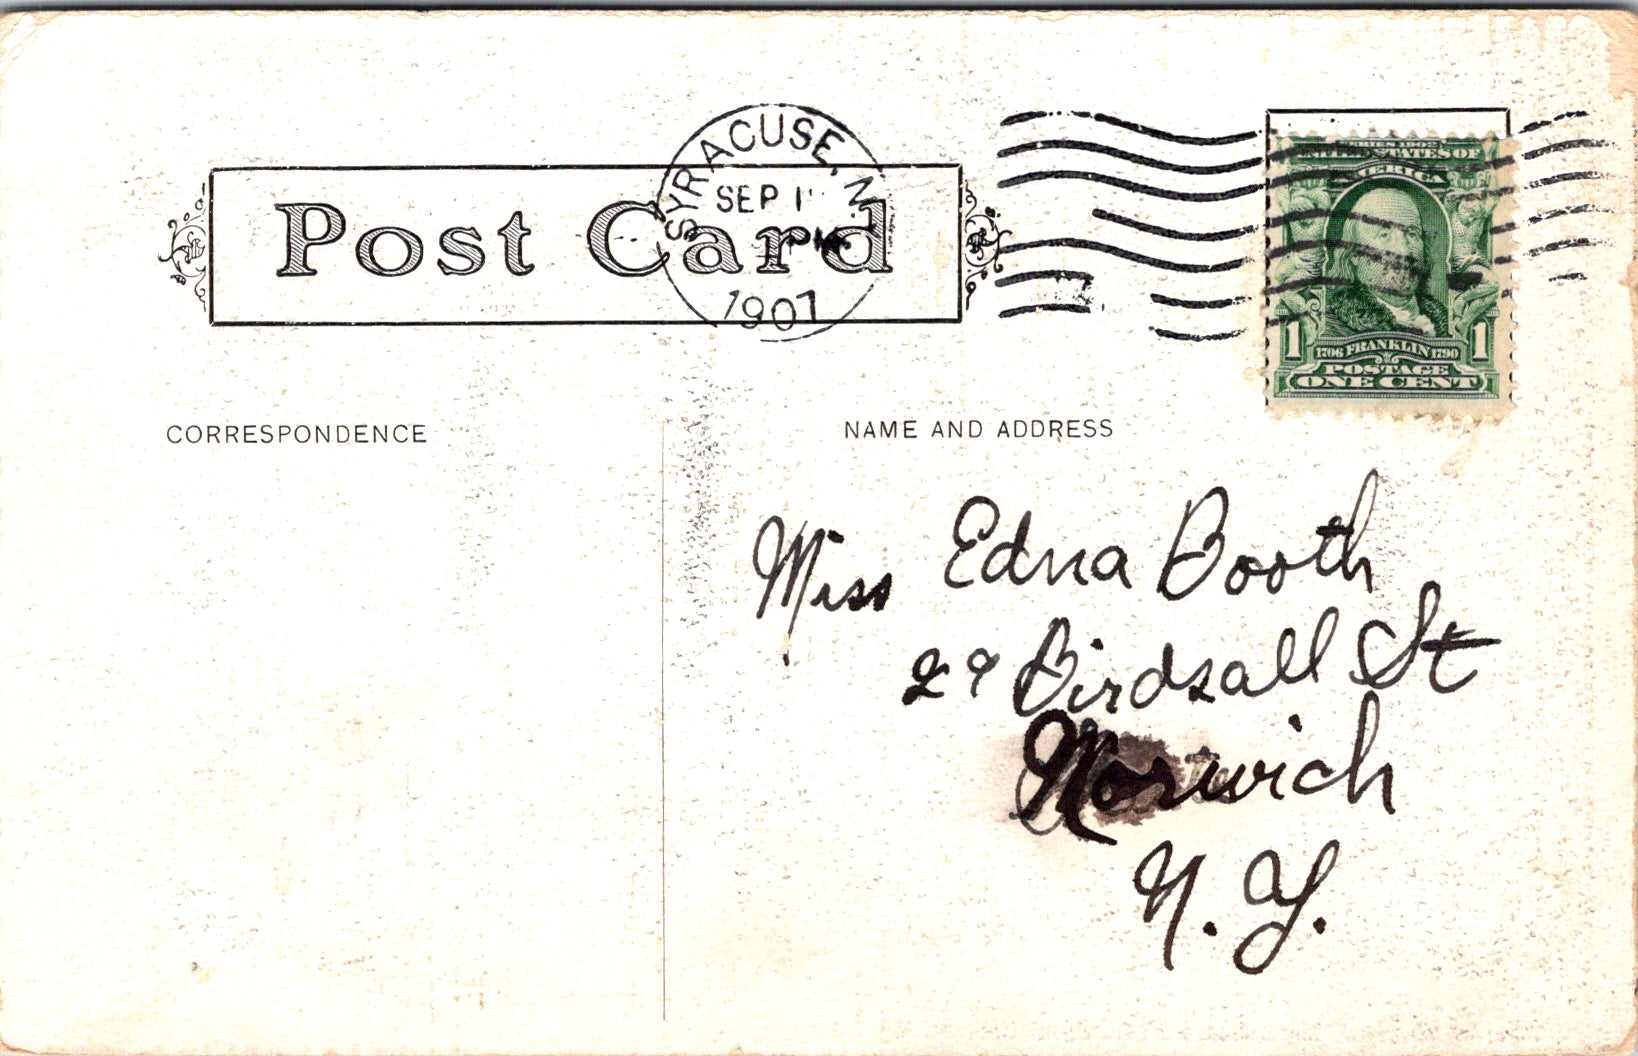 Post Card
SYRACUSE, N.Y.
SEP 1
PM
1907
SERIES 1902
UNITED STATES OF
AMERICA
1 1706 FRANKLIN 1790 1
POSTAGE
ONE CENT
CORRESPONDENCE
NAME AND ADDRESS
Miss Edna Booth
29 Birdsall St
Norwich
N. Y.